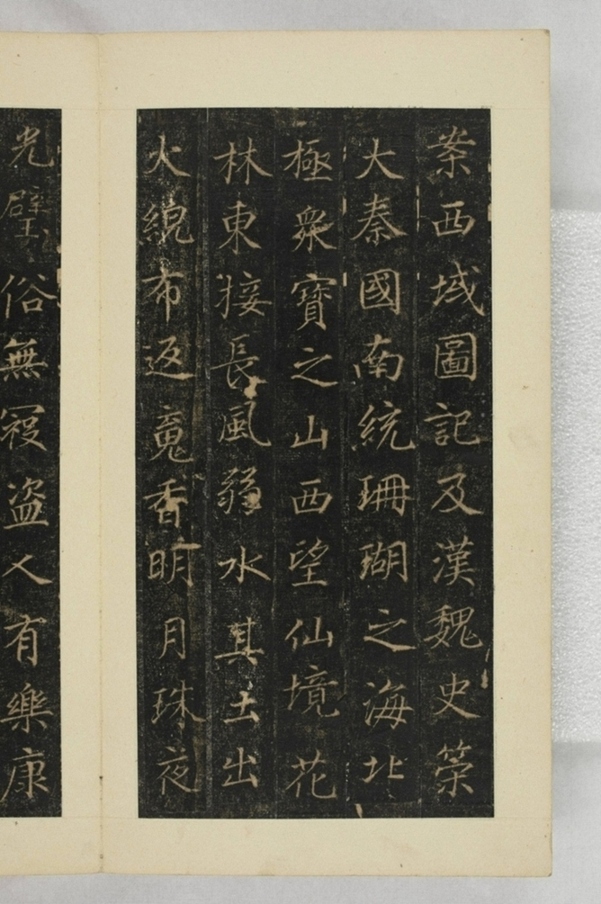 案西域圖記及漢魏史策
大秦國南統珊瑚之海北
極衆寶之山西望仙境花
林東接長風弱水其土出
火綄布返魂香明月珠夜
光璧俗無寇盗人有樂康